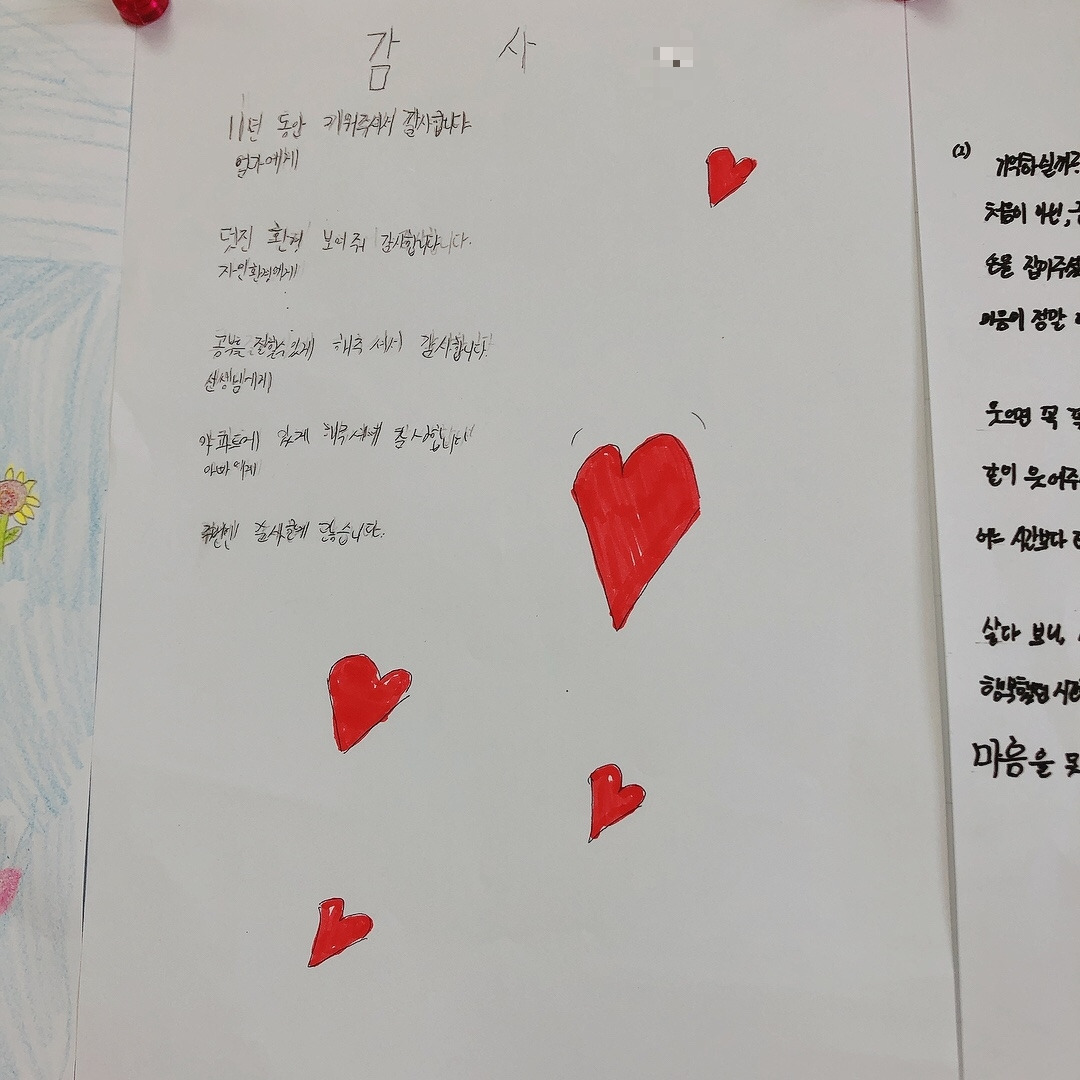 감 사
11년 동안 키워주셔서 감사합니다
엄마에게
멋진 환경 보여줘 감사합니다.
자연환경에게
공부를 잘할수있게 해주셔서 감사합니다.
선생님에게
아파트에 있게 해주셔서 감사합니다
아빠에게
주변에 감사한게 많습니다.
(2) 기억하실까
처음이 아닌,
손을 잡아주셨
마음이 정말
웃으면 꼭
같이 웃어주
어느 시간보다
살다 보니,
행복했던 시
마음을 못